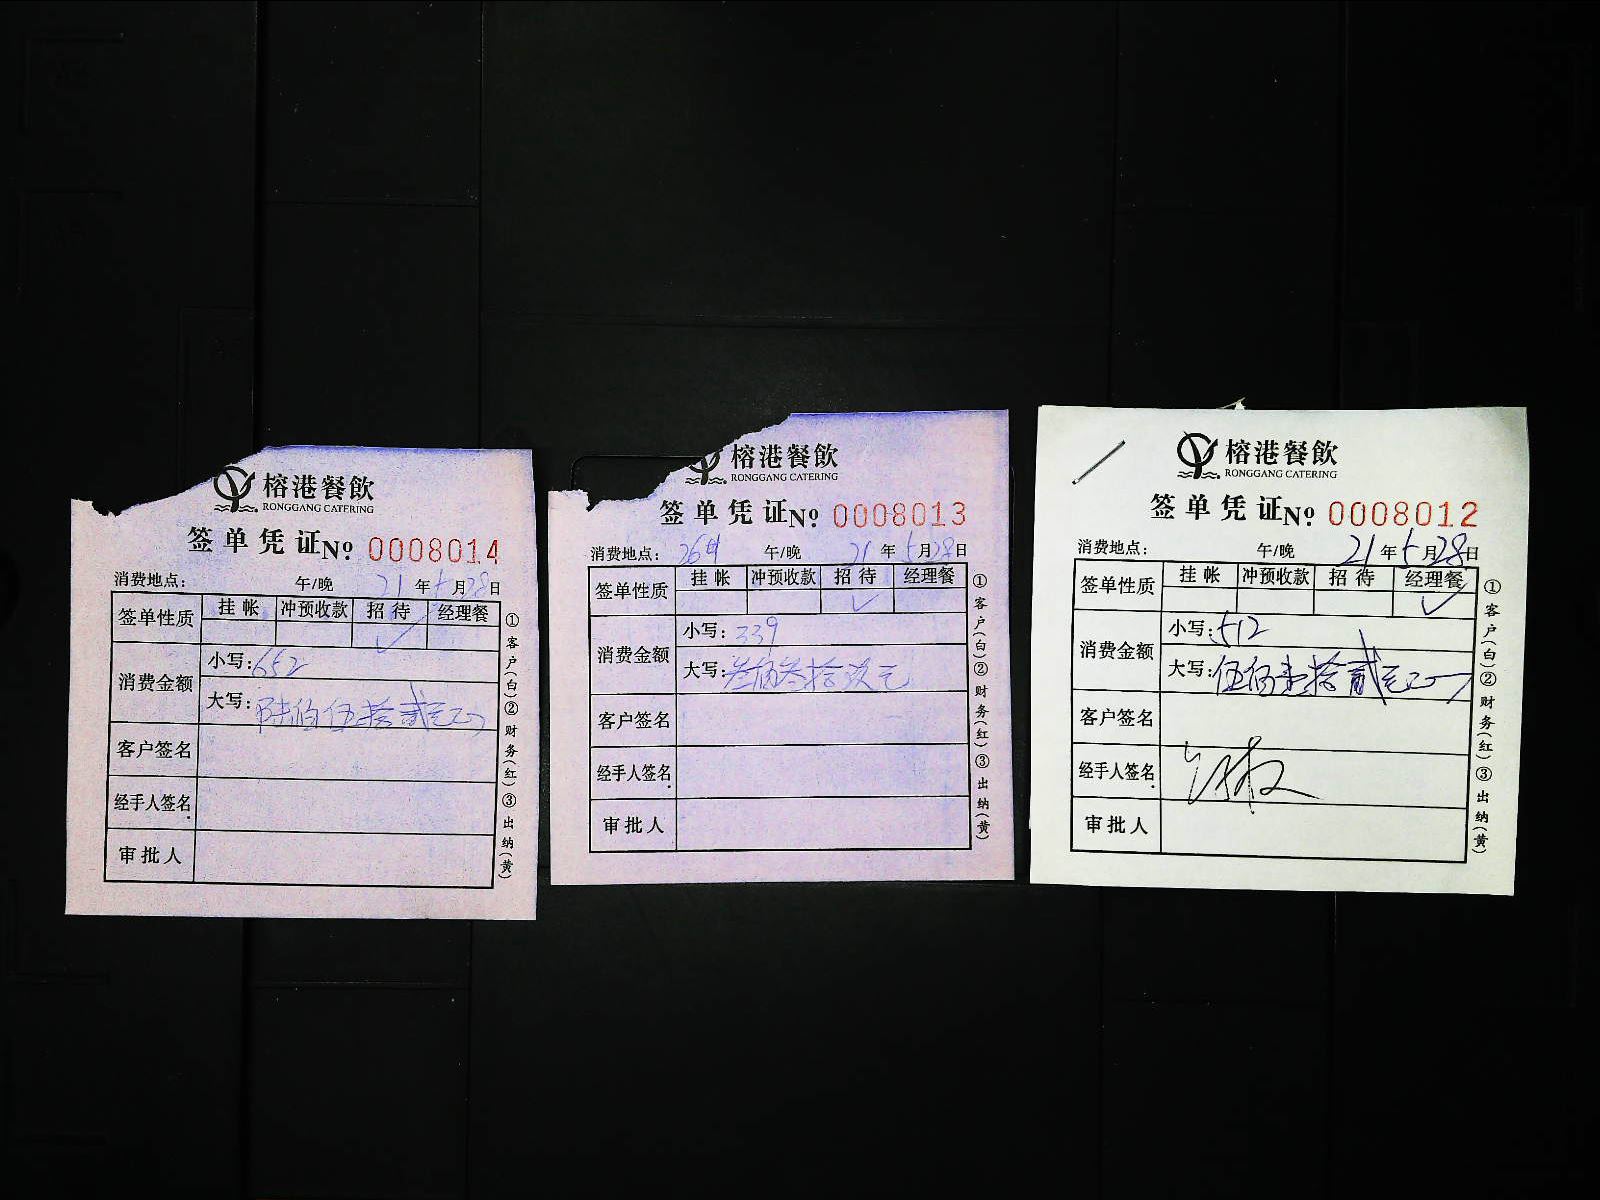 榕港餐飲
RONGGANG CATERING
签单凭证№ 0008014
消费地点： 午/晚 21年5月28日
签单性质 挂帐 冲预收款 招待 经理餐
✓
消费金额 小写：652
大写：陆佰伍拾贰元正
客户签名
经手人签名
审批人
①客户(白)②财务(红)③出纳(黄)
榕港餐飲
RONGGANG CATERING
签单凭证№ 0008013
消费地点： 午/晚 21年5月28日
签单性质 挂帐 冲预收款 招待 经理餐
✓
消费金额 小写：339
大写：叁佰叁拾玖元
客户签名
经手人签名
审批人
①客户(白)②财务(红)③出纳(黄)
榕港餐飲
RONGGANG CATERING
签单凭证№ 0008012
消费地点： 午/晚 21年5月28日
签单性质 挂帐 冲预收款 招待 经理餐
✓
消费金额 小写：512
大写：伍佰壹拾贰元正
客户签名
经手人签名
审批人
①客户(白)②财务(红)③出纳(黄)